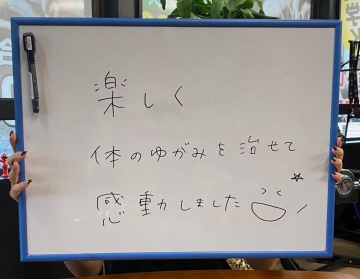 楽しく
体のゆがみを治せて
感動しました